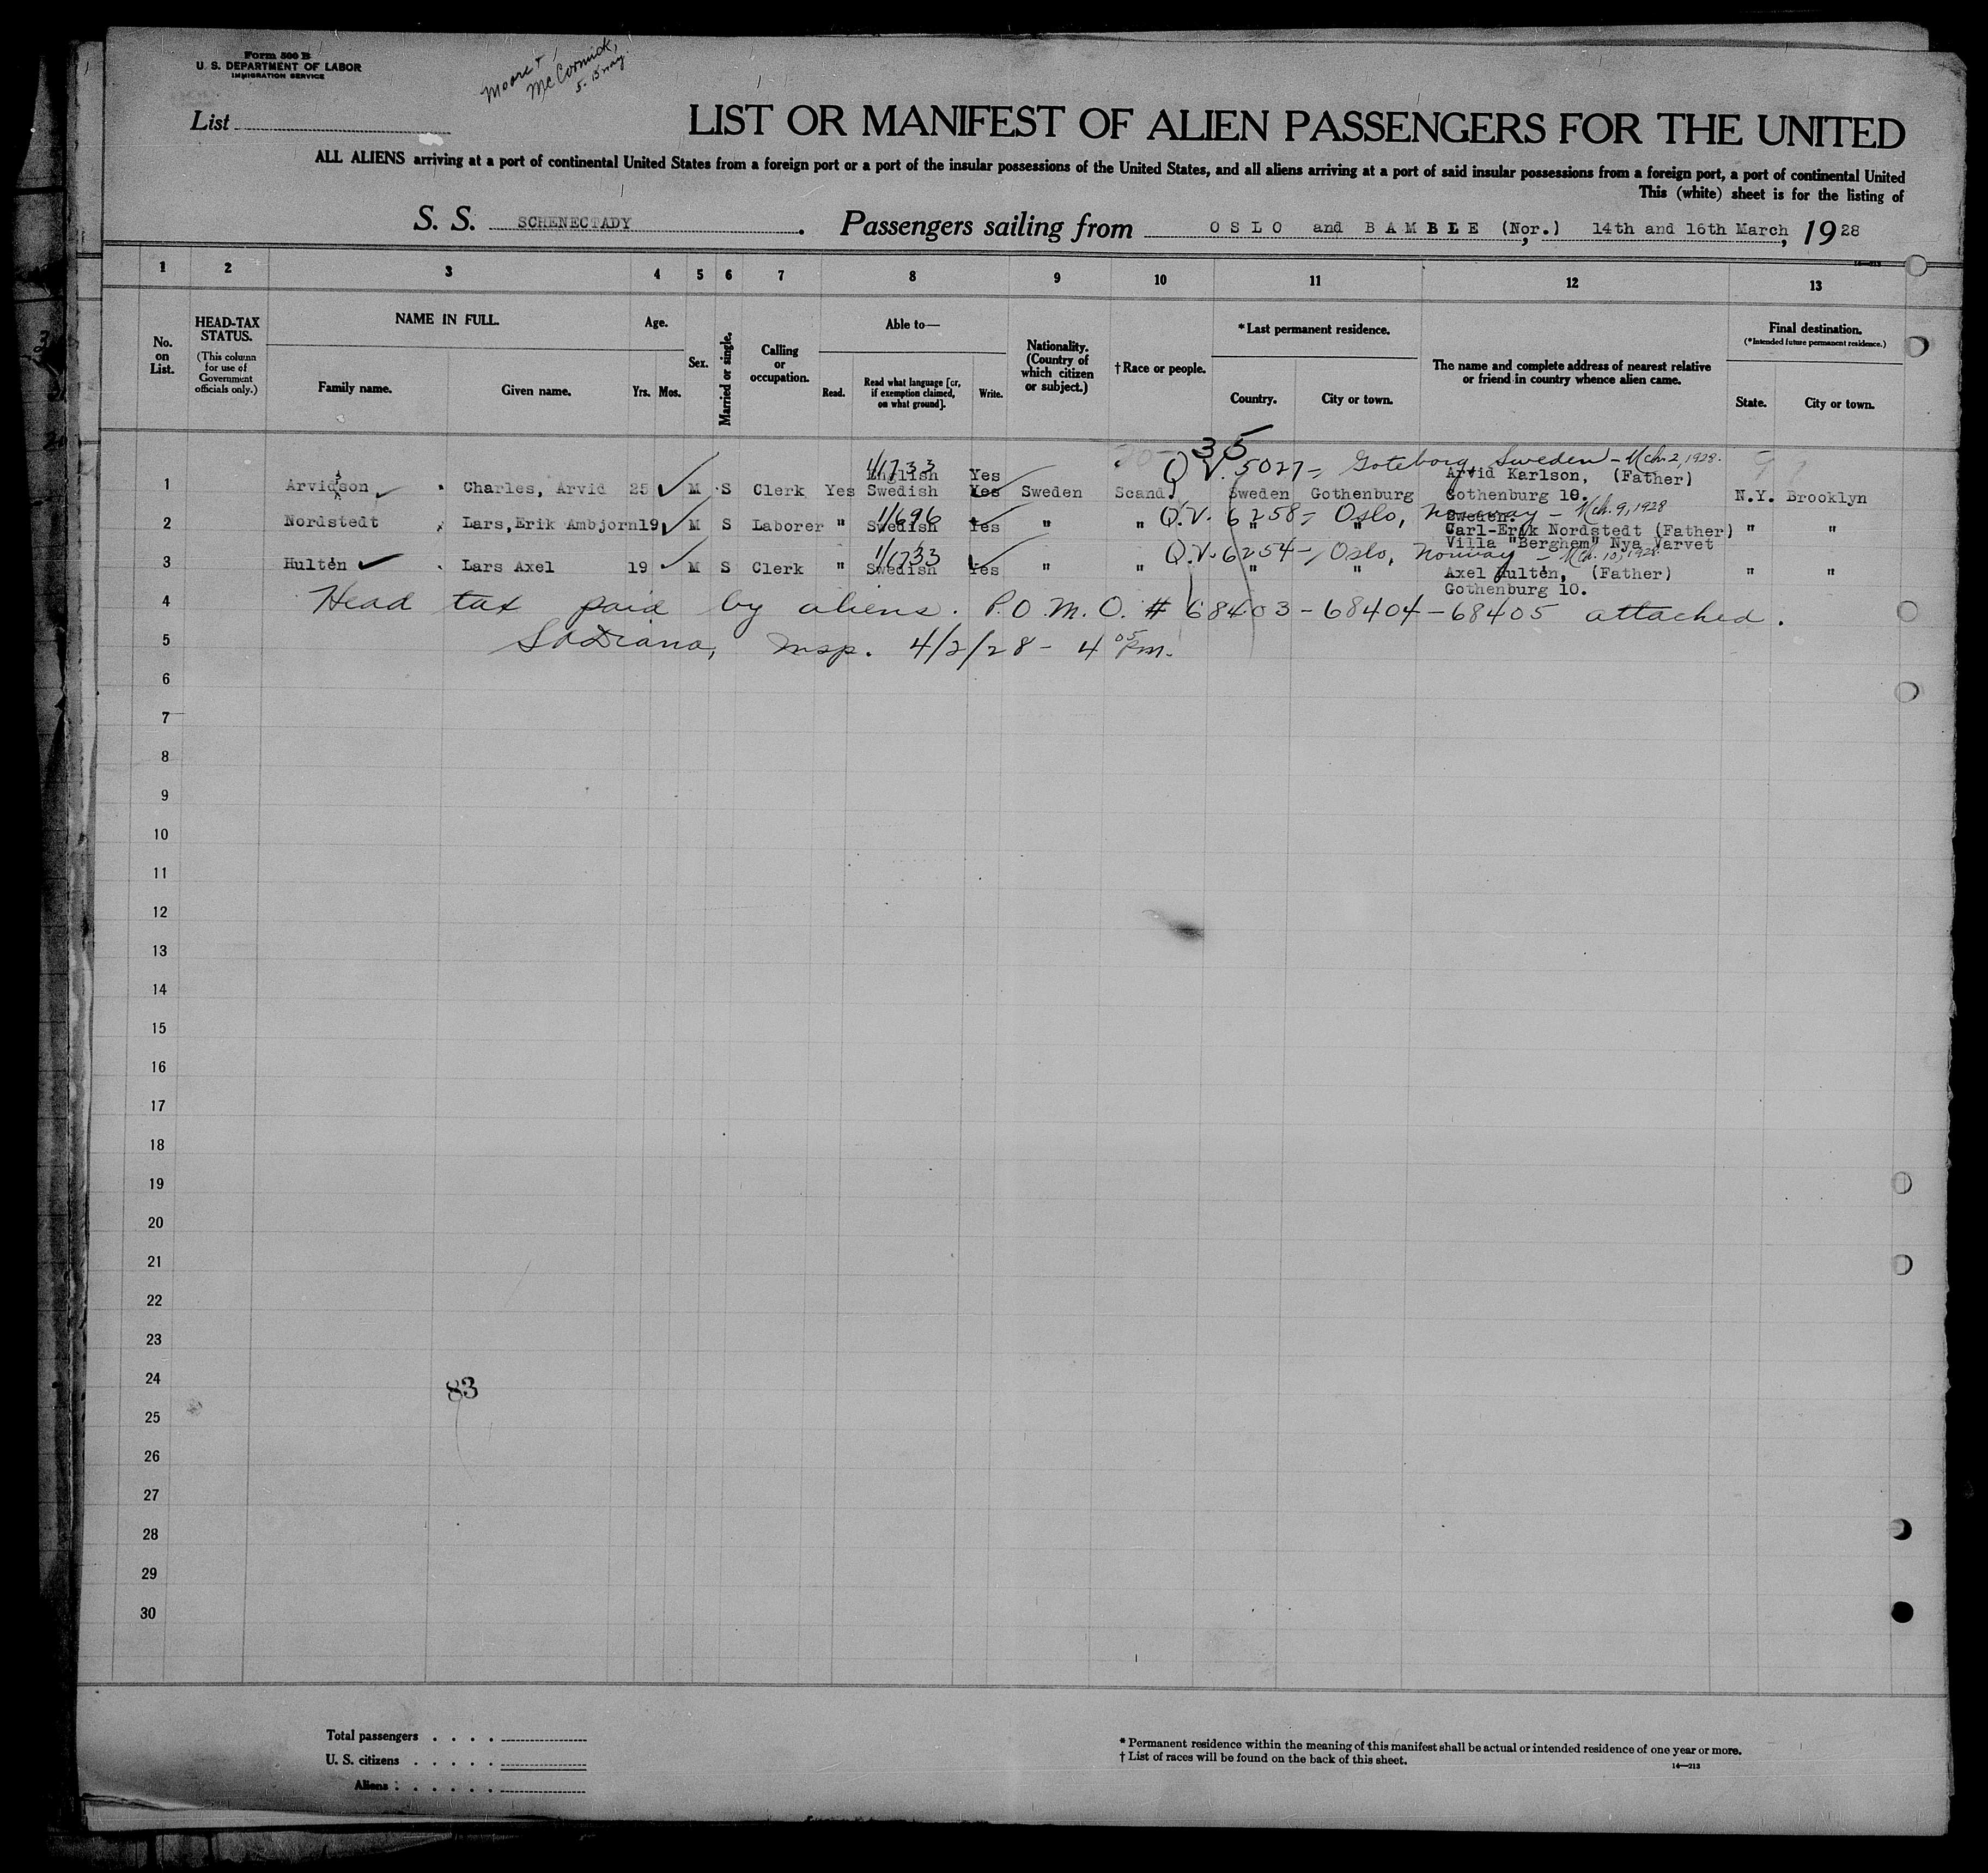 Form 500 B
U. S. DEPARTMENT OF LABOR
IMMIGRATION SERVICE
Moore +
McCormick,
List
LIST OR MANIFEST OF ALIEN PASSENGERS FOR THE UNITED
ALL ALIENS arriving at a port of continental United States from a foreign port or a port of the insular possessions of the United States, and all aliens arriving at a port of said insular possessions from a foreign port, a port of continental United
This (white) sheet is for the listing of
S. S. SCHENECTADY. Passengers sailing from OSLO and BAMBLE (Nor.), 14th and 16th March, 1928
1 2 3 4 5 6 7 8 9 10 11 12 13
No. on List.
HEAD-TAX STATUS.
(This column for use of Government officials only.)
NAME IN FULL.
Family name. Given name.
Age.
Yrs. Mos.
Sex.
Married or single.
Calling or occupation.
Able to—
Read. Read what language [or, if exemption claimed, on what ground]. Write.
Nationality. (Country of which citizen or subject.)
† Race or people.
* Last permanent residence.
Country. City or town.
The name and complete address of nearest relative or friend in country whence alien came.
Final destination.
(* Intended future permanent residence.)
State. City or town.
35
1/1733 Q.V. 5027 - Goteborg, Sweden - Mch. 2, 1928.
English Yes Arvid Karlson, (Father)
1 Arvidson Charles, Arvid 25 M S Clerk Yes Swedish Yes Sweden Scand. Sweden Gothenburg Gothenburg 10. N.Y. Brooklyn
Sweden.
1/696 Q.V. 6258 - Oslo, Norway - Mch. 9, 1928
2 Nordstedt Lars, Erik Ambjorn 19 M S Laborer " Swedish Yes " " " " Carl-Erik Nordstedt (Father) " "
Villa "Berghem" Nya Varvet
1/1733 Q.V. 6254 - Oslo, Norway - Mch. 10, 1928
3 Hultén Lars Axel 19 M S Clerk " Swedish Yes " " " " Axel Hultén, (Father) " "
Gothenburg 10.
4 Head tax paid by aliens. P.O.M.O. # 68403 - 68404 - 68405 attached.
5 Insp. 4/2/28 - 4 05 Pm.
6
7
8
9
10
11
12
13
14
15
16
17
18
19
20
21
22
23
24
83
25
26
27
28
29
30
Total passengers
U. S. citizens
Aliens
* Permanent residence within the meaning of this manifest shall be actual or intended residence of one year or more.
† List of races will be found on the back of this sheet.
14—213